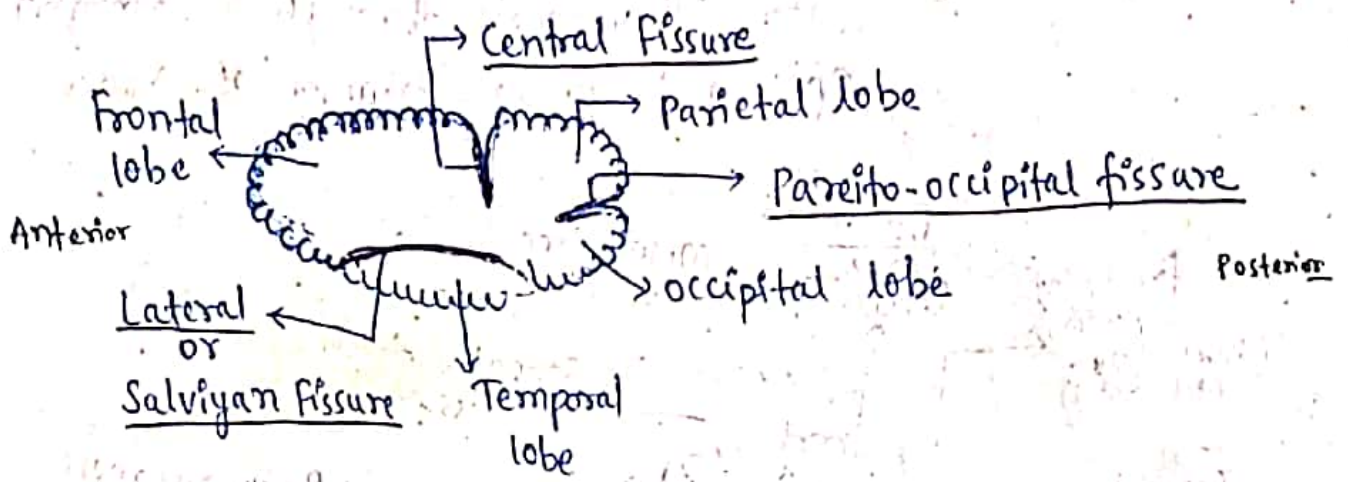 Central Fissure
Frontal
lobe
Parietal lobe
Pareito-occipital fissure
Anterior
Posterior
occipital lobe
Lateral
or
Salviyan Fissure
Temporal
lobe